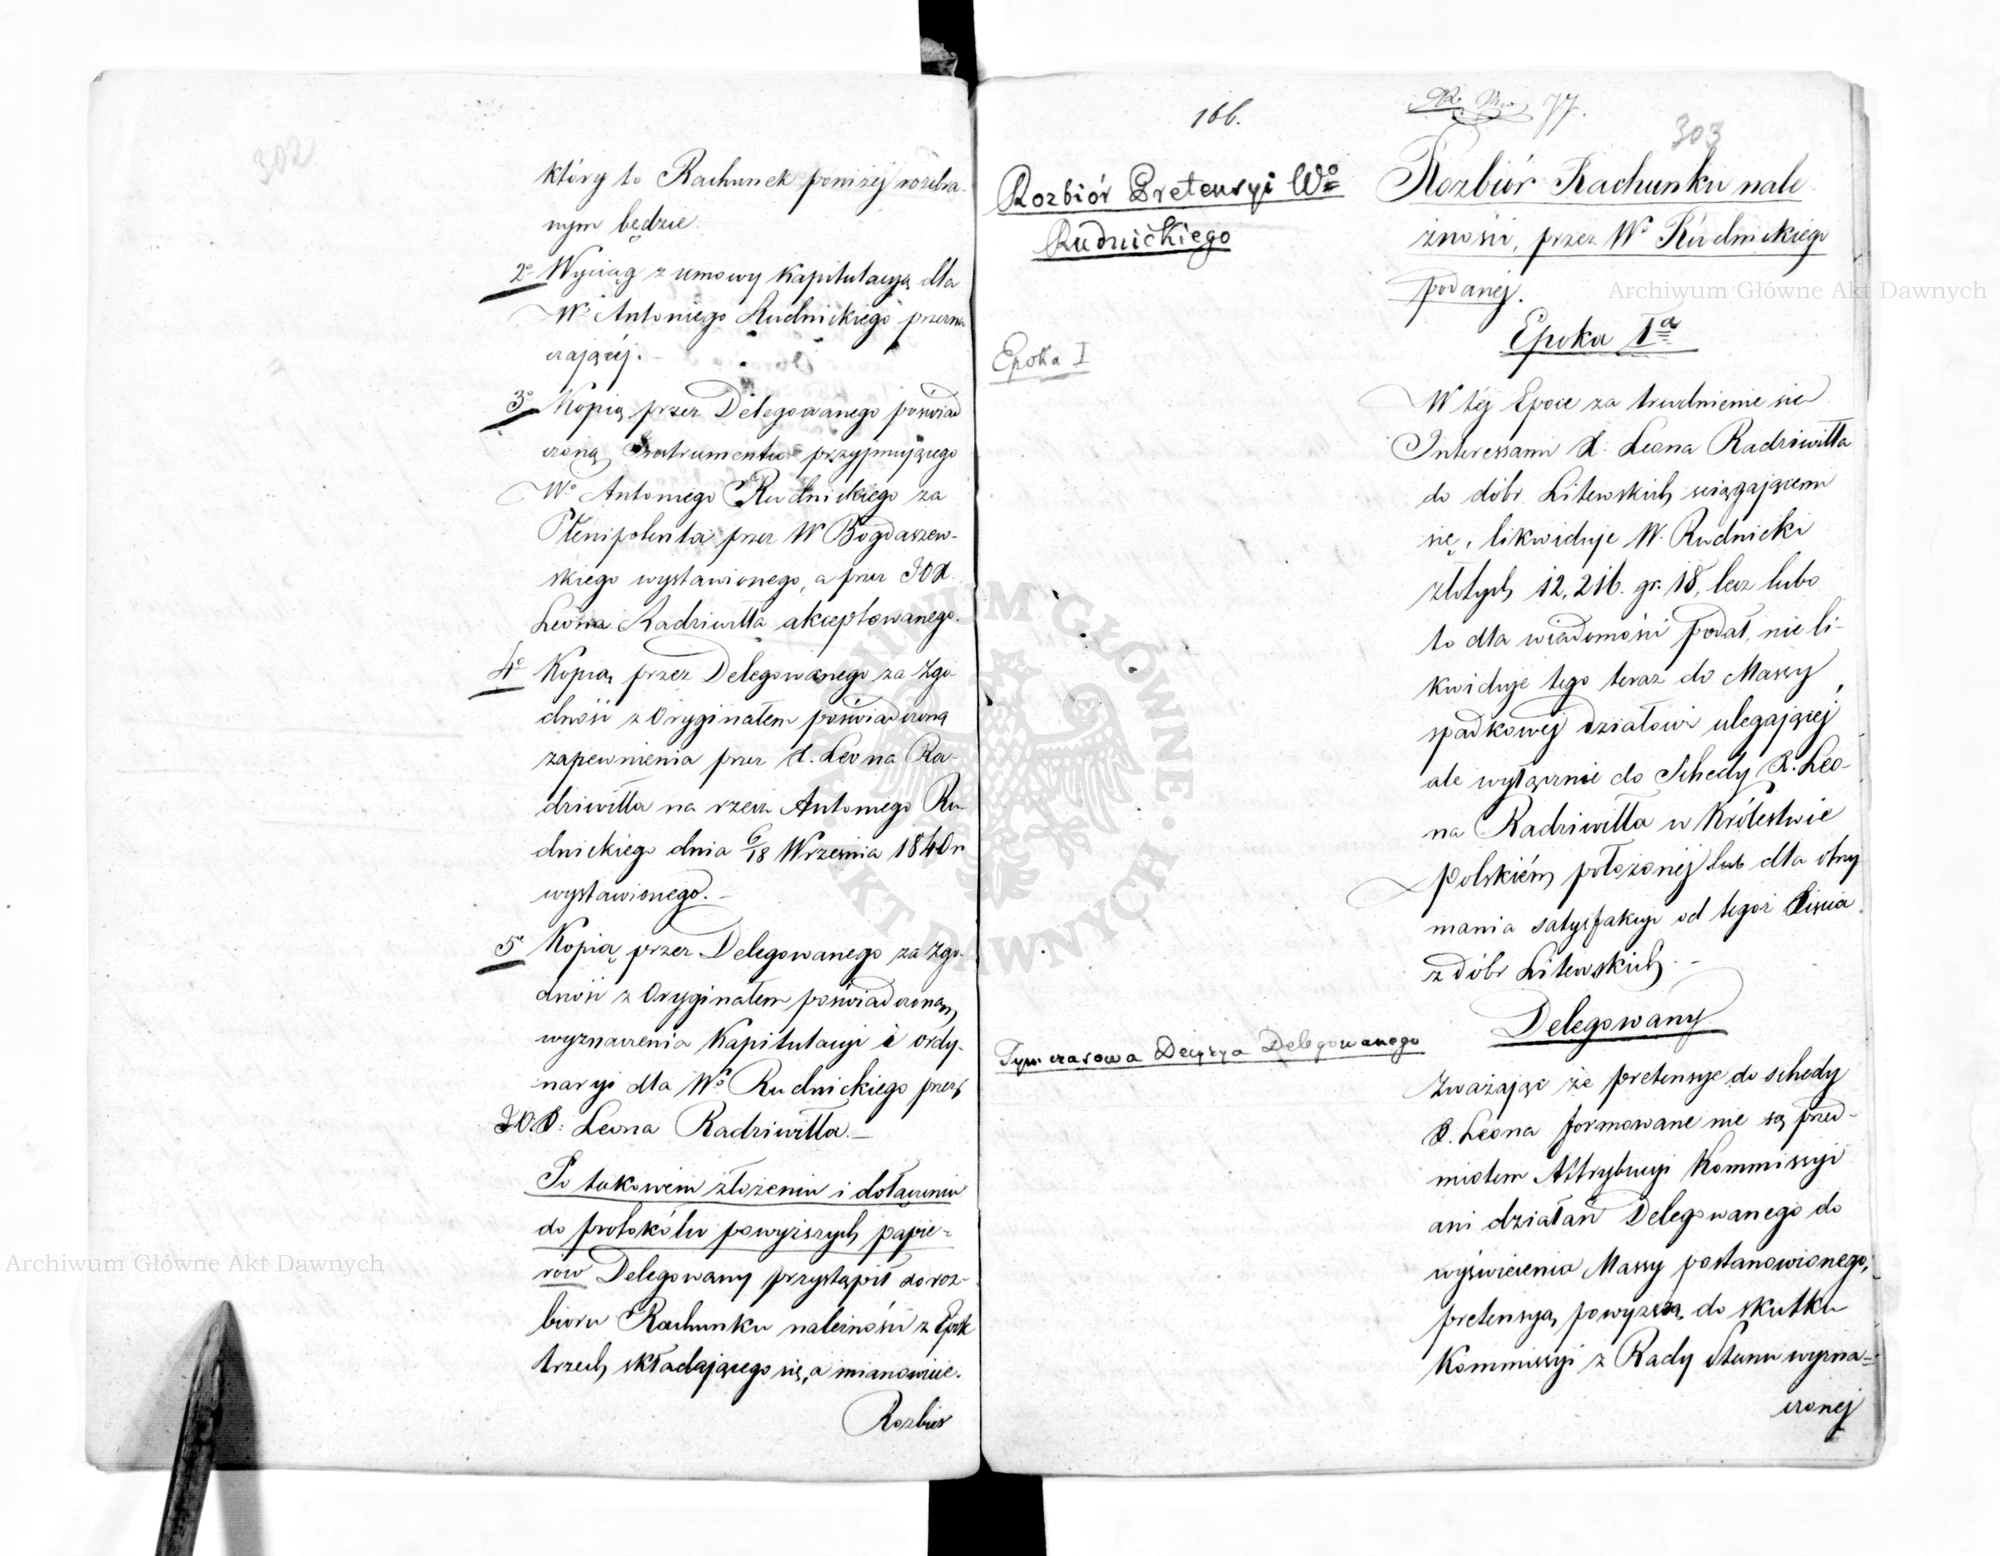 302
który to Rachunek poniżej rozebra-
nym będzie.
2o Wyciąg z umowy Kapitulacyą dla
Wo Antoniego Rudnickiego przezna
czającej.
3o Kopią przez Delegowanego poświad
czoną Instrumentu przyjmującego
Wo Antoniego Rudnickiego za
Plenipotenta przez W Bogdaszew-
skiego wystawionego, a przez JOX.
Leona Radziwiłła akceptowanego.
4o Kopią przez Delegowanego za zgo
dność z Oryginałem poświadczoną
zapewnienia przez X. Leona Ra-
dziwiłła na rzecz Antoniego Ru
dnickiego dnia 6/18 Września 1840 r
wystawionego.
5o Kopią przez Delegowanego za zgo-
dność z Oryginałem poświadczoną
wyznaczenia Kapitulacyi i ordy-
naryi dla Wo Rudnickiego przez
JO.X: Leona Radziwiłła.
Po takowem złożeniu i dołączeniu
do protokółu powyższych papie-
rów Delegowany przystąpił do roz-
bioru Rachunku należności z Epok
trzech składającego się, a mianowicie.
Rozbiór
166.
77.
303
Rozbiór Pretensyi Wo
Rudnickiego
Rozbiór Rachunku nale
żności, przez Wo Rudnickiego
podanej.
Epoka Ia
Epoka I
W tej Epoce za trudnienie się
Interessami X. Leona Radziwiłła
do dóbr Litewskich ściągającemi
się, likwiduje W. Rudnicki
złotych 12,216. gr. 18, lecz lubo
to dla wiadomości podał, nie li-
kwiduje tego teraz do Massy
spadkowej działowi ulegającej,
ale wyłącznie do Schedy X. Leo-
na Radziwiłła w Królestwie
polskiém położonej lub dla otrzy
mania satysfakcyi od tegoż Xięcia
z dóbr Litewskich.
Delegowany
Tymczasowa Decyzya Delegowanego
Zważając że pretensye do schedy
X. Leona formowane nie są przed-
miotem Attrybucyi Kommissyi
ani działań Delegowanego do
wyświecenia Massy postanowionego,
pretensyą powyższą do skutku
Kommissyi z Rady Stanu wyzna-
czonej
Archiwum Główne Akt Dawnych
Archiwum Główne Akt Dawnych
ARCHIWUM GŁÓWNE AKT DAWNYCH